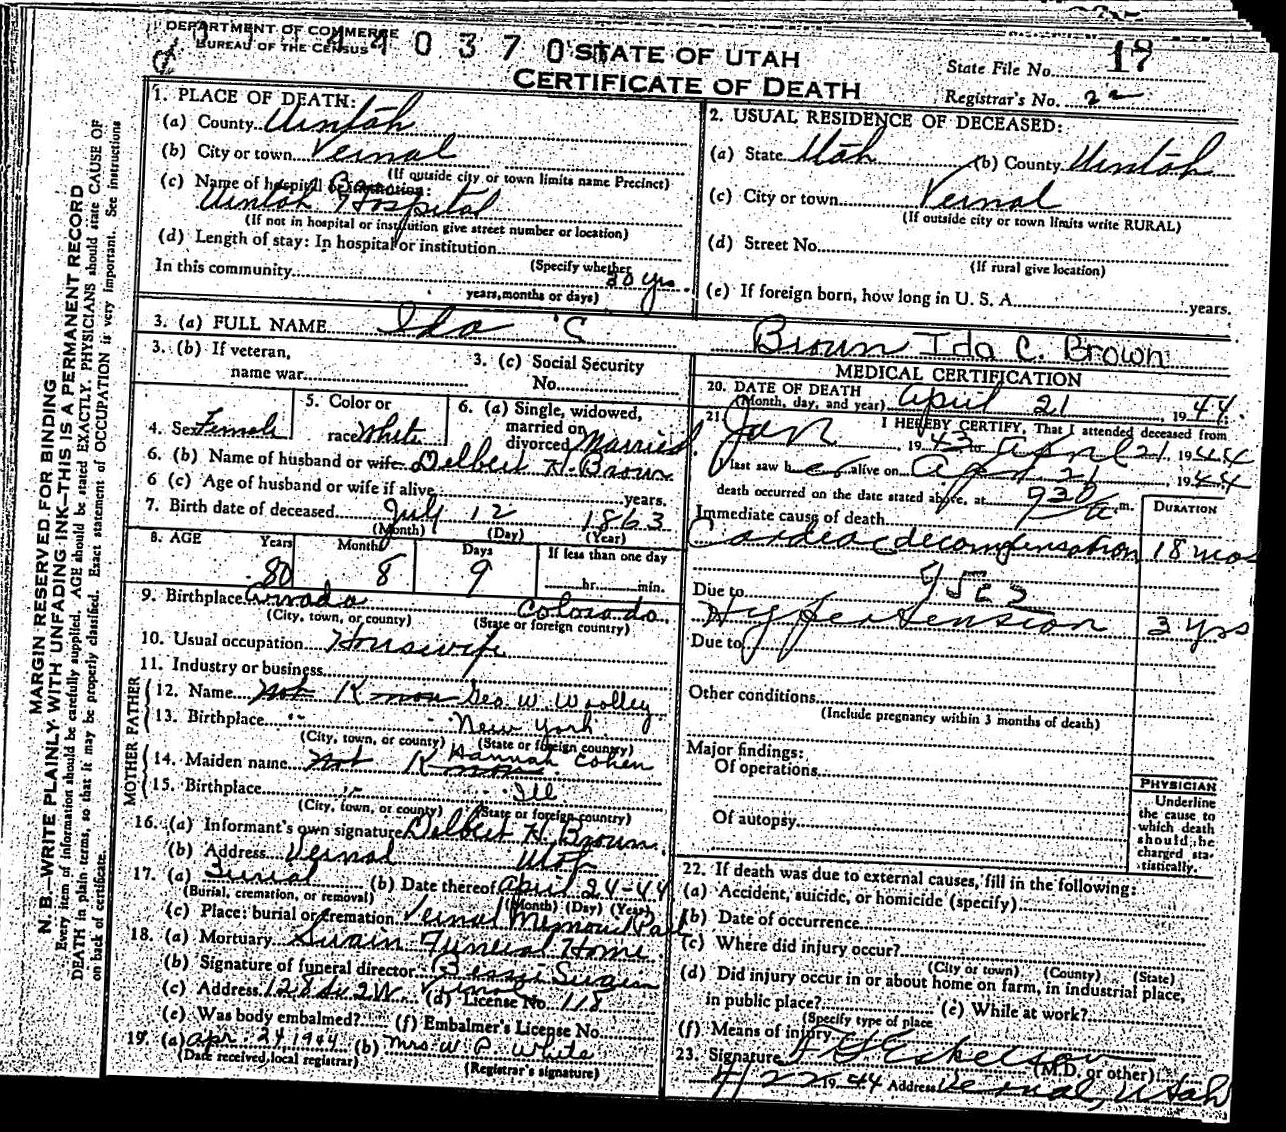 DEPARTMENT OF COMMERCE
BUREAU OF THE CENSUS
STATE OF UTAH
CERTIFICATE OF DEATH
State File No. 18
Registrar's No. 22
MARGIN RESERVED FOR BINDING
N. B.—WRITE PLAINLY WITH UNFADING INK—THIS IS A PERMANENT RECORD
Every item of information should be carefully supplied. AGE should be stated EXACTLY. PHYSICIANS should state CAUSE OF
DEATH in plain terms, so that it may be properly classified. Exact statement of OCCUPATION is very important. See instructions
on back of certificate.
1. PLACE OF DEATH:
(a) County Uintah
(b) City or town Vernal
(If outside city or town limits name Precinct)
(c) Name of hospital or institution:
Uintah Hospital
(If not in hospital or institution give street number or location)
(d) Length of stay: In hospital or institution
(Specify whether
In this community 30 yrs.
years, months or days)
2. USUAL RESIDENCE OF DECEASED:
(a) State Utah (b) County Uintah
(c) City or town Vernal
(If outside city or town limits write RURAL)
(d) Street No.
(If rural give location)
(e) If foreign born, how long in U. S. A. years.
3. (a) FULL NAME Ida C Brown Ida C. Brown
3. (b) If veteran,
name war
3. (c) Social Security
No.
4. Sex Female
5. Color or
race White
6. (a) Single, widowed,
married or
divorced Married
6. (b) Name of husband or wife Delbert H. Brown
6 (c) Age of husband or wife if alive years.
7. Birth date of deceased July 12 1863
(Month) (Day) (Year)
8. AGE Years Months Days If less than one day
80 8 9 hr. min.
9. Birthplace Arvada Colorado
(City, town, or county) (State or foreign country)
10. Usual occupation Housewife
11. Industry or business
FATHER
12. Name Not Known Geo. W. Woolley
13. Birthplace New York
(City, town, or county) (State or foreign country)
MOTHER
14. Maiden name Not Known Hannah Cohen
15. Birthplace Ill
(City, town, or county) (State or foreign country)
16. (a) Informant's own signature Delbert H. Brown
(b) Address Vernal Utah
17. (a) Burial (b) Date thereof April 24-44
(Burial, cremation, or removal) (Month) (Day) (Year)
(c) Place: burial or cremation Vernal Memorial Park
18. (a) Mortuary Swain Funeral Home
(b) Signature of funeral director Bessie Swain
(c) Address 128 So 2W. Vernal (d) License No. 118
(e) Was body embalmed? (f) Embalmer's License No.
19. (a) Apr. 24, 1944 (b) Mrs. W. P. White
(Date received, local registrar) (Registrar's signature)
MEDICAL CERTIFICATION
20. DATE OF DEATH
(Month, day, and year) April 21, 1944.
21. I HEREBY CERTIFY, That I attended deceased from
Jan, 1943 to April 21, 1944
I last saw her alive on April 21, 1944
death occurred on the date stated above, at 930 a.m.
DURATION
Immediate cause of death
Cardiac decompensation 18 mos
Due to
Hypertension 3 yrs
Due to
Other conditions
(Include pregnancy within 3 months of death)
Major findings:
Of operations
Of autopsy
PHYSICIAN
Underline
the cause to
which death
should be
charged sta-
tistically.
22. If death was due to external causes, fill in the following:
(a) Accident, suicide, or homicide (specify)
(b) Date of occurrence
(c) Where did injury occur?
(City or town) (County) (State)
(d) Did injury occur in or about home on farm, in industrial place,
in public place? (e) While at work?
(Specify type of place
(f) Means of injury
23. Signature Eskelson (M.D. or other)
4/22 1944 Address Vernal, Utah